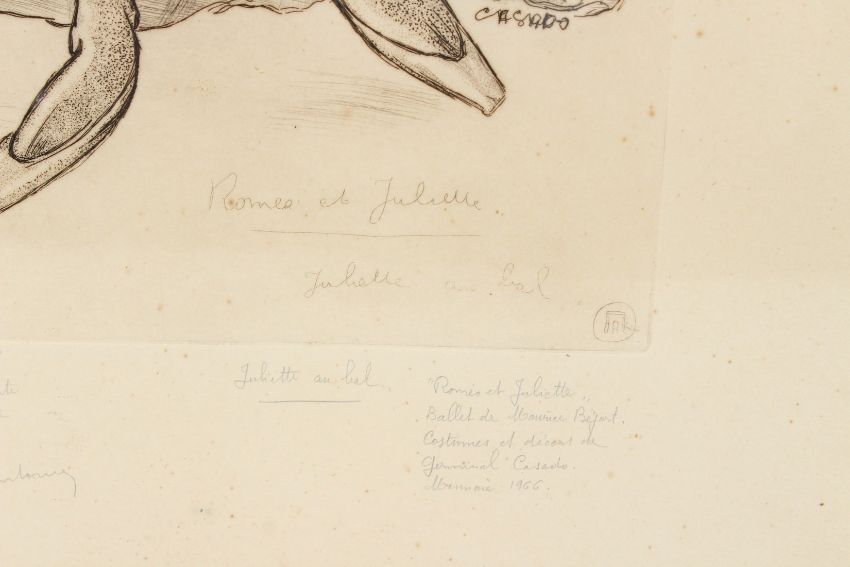 CASADO
Romeo et Juliette
Juliette au bal
Juliette au bal
"Roméo et Juliette"
Ballet de Maurice Béjart.
Costumes et décors de
Germinal Casado.
Monnaie 1966.